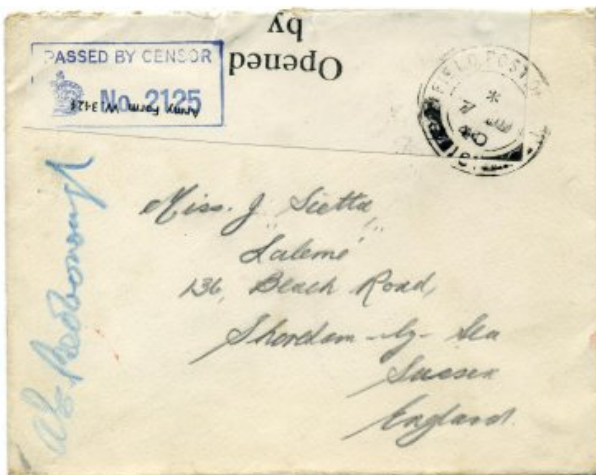 Opened
by
PASSED BY CENSOR
No. 2125
Army Form W3424
FIELD POST
Miss. J Sietta,
"Salemé"
136, Beach Road,
Shoreham-by-Sea
Sussex
England.